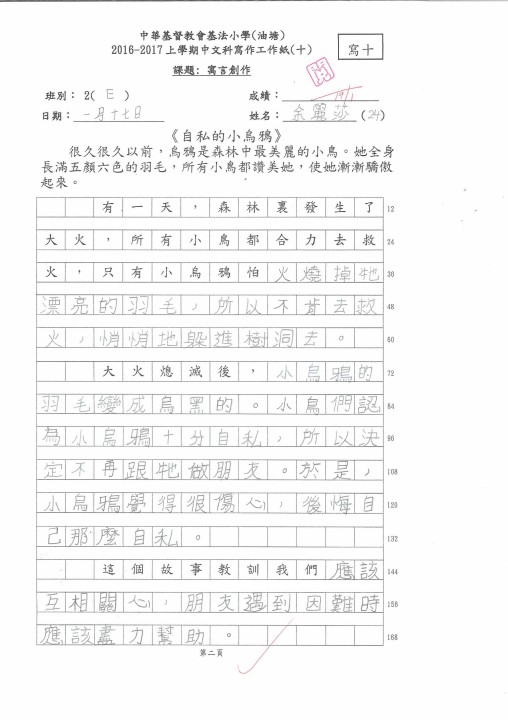 中華基督教會基法小學(油塘)
2016-2017上學期中文科寫作工作紙(十)
寫十
課題: 寓言創作
閱
班別： 2( E )
成績： 19/1
日期： 一月十七日
姓名： 余麗莎 (24)
《自私的小烏鴉》
很久很久以前，烏鴉是森林中最美麗的小鳥。她全身
長滿五顏六色的羽毛，所有小鳥都讚美她，使她漸漸驕傲
起來。
有一天，森林裏發生了 12
大火，所有小鳥都合力去救 24
火，只有小烏鴉怕火燒掉牠 36
漂亮的羽毛，所以不肯去救 48
火，悄悄地躲進樹洞去。 60
大火熄滅後，小烏鴉的 72
羽毛變成烏黑的。小鳥們認 84
為小烏鴉十分自私，所以決 96
定不再跟牠做朋友。於是， 108
小烏鴉覺得很傷心，後悔自 120
己那麼自私。 132
這個故事教訓我們應該 144
互相關心，朋友遇到困難時 156
應該盡力幫助。 168
第二頁